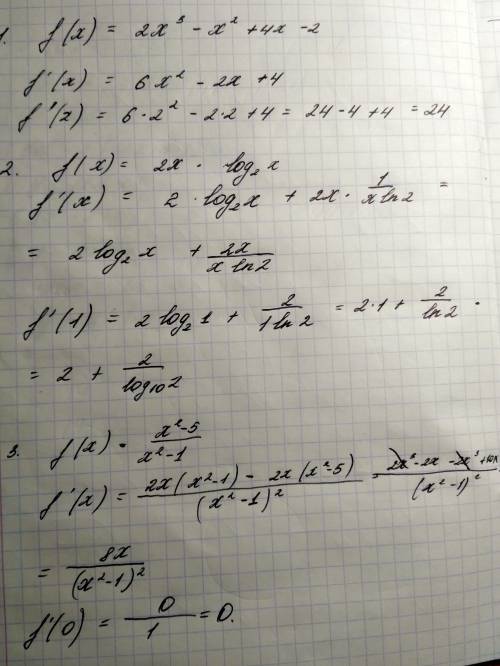 1. f(x) = 2x³ - x² + 4x - 2
f'(x) = 6x² - 2x + 4
f'(2) = 6·2² - 2·2 + 4 = 24 - 4 + 4 = 24
2. f(x) = 2x · log₂x
f'(x) = 2 · log₂x + 2x · 1/(x ln2) =
= 2 log₂x + 2x/(x ln2)
f'(1) = 2 log₂1 + 2/(1 ln2) = 2·1 + 2/(ln2) ·
= 2 + 2/(log₁₀2)
3. f(x) = (x²-5)/(x²-1)
f'(x) = (2x(x²-1) - 2x(x²-5))/((x²-1)²) = (2x³-2x-2x³+10x)/((x²-1)²)
= 8x/((x²-1)²)
f'(0) = 0/1 = 0.